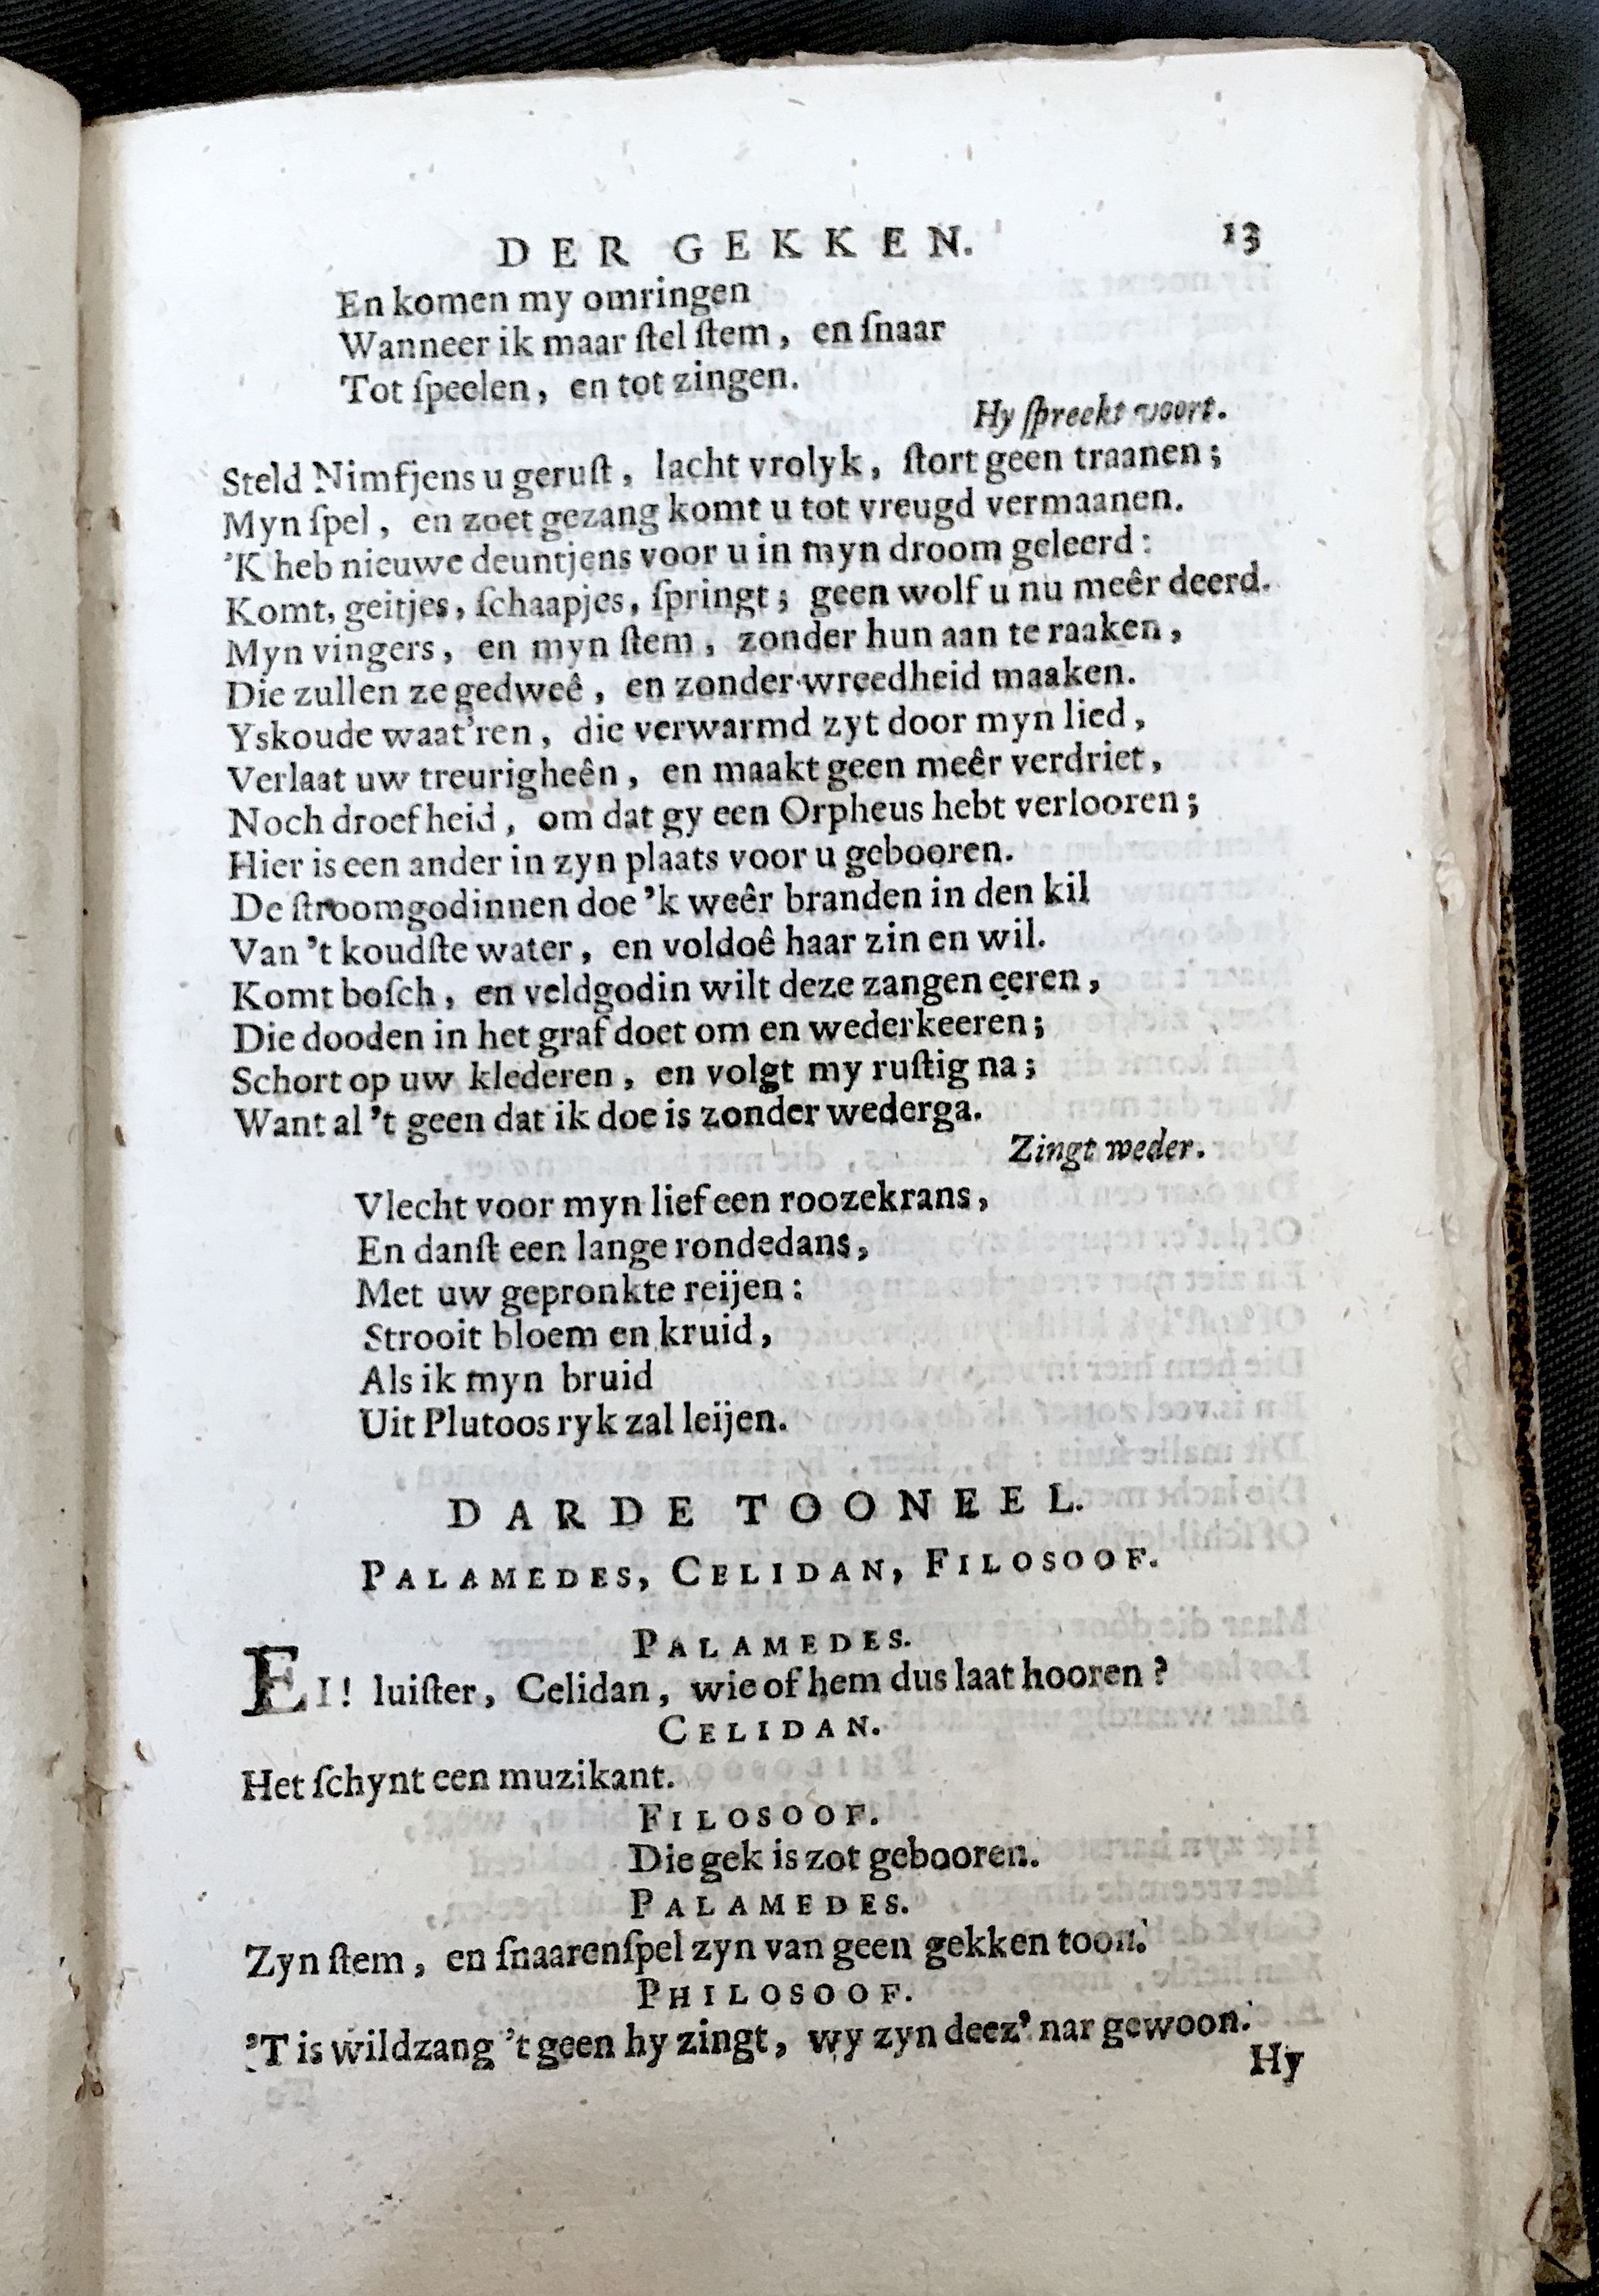 DER GEKKEN. 13
En komen my omringen
Wanneer ik maar ſtel ſtem, en ſnaar
Tot ſpeelen, en tot zingen.
Hy ſpreekt voort.
Steld Nimfjens u geruſt, lacht vrolyk, ſtort geen traanen;
Myn ſpel, en zoet gezang komt u tot vreugd vermaanen.
'K heb nieuwe deuntjens voor u in myn droom geleerd:
Komt, geitjes, ſchaapjes, ſpringt; geen wolf u nu meêr deerd.
Myn vingers, en myn ſtem, zonder hun aan te raaken,
Die zullen ze gedweê, en zonder wreedheid maaken.
Yskoude waat'ren, die verwarmd zyt door myn lied,
Verlaat uw treurigheên, en maakt geen meêr verdriet,
Noch droefheid, om dat gy een Orpheus hebt verlooren;
Hier is een ander in zyn plaats voor u gebooren.
De ſtroomgodinnen doe 'k weêr branden in den kil
Van 't koudſte water, en voldoê haar zin en wil.
Komt boſch, en veldgodin wilt deze zangen eeren,
Die dooden in het graf doet om en wederkeeren;
Schort op uw klederen, en volgt my ruſtig na;
Want al 't geen dat ik doe is zonder wederga.
Zingt weder.
Vlecht voor myn lief een roozekrans,
En danſt een lange rondedans,
Met uw gepronkte reijen:
Strooit bloem en kruid,
Als ik myn bruid
Uit Plutoos ryk zal leijen.
DARDE TOONEEL.
PALAMEDES, CELIDAN, FILOSOOF.
PALAMEDES.
EI! luiſter, Celidan, wie of hem dus laat hooren?
CELIDAN.
Het ſchynt een muzikant.
FILOSOOF.
Die gek is zot gebooren.
PALAMEDES.
Zyn ſtem, en ſnaarenſpel zyn van geen gekken toon.
PHILOSOOF.
'T is wildzang 't geen hy zingt, wy zyn deez' nar gewoon.
Hy